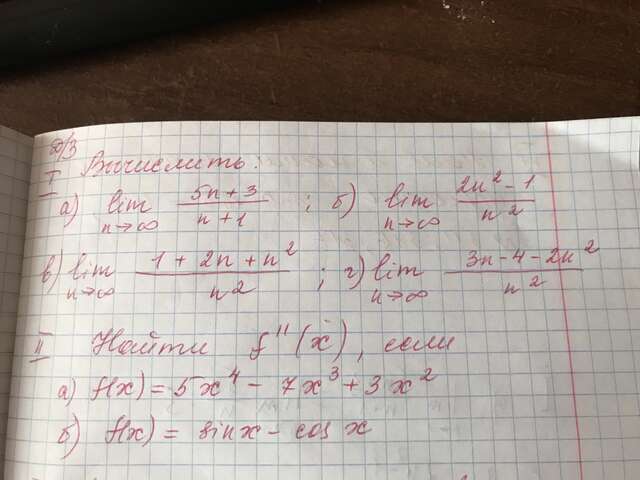 Д/З
I Вычислить:
а) lim n→∞ (5n+3)/(n+1) ; б) lim n→∞ (2n²-1)/n²
в) lim n→∞ (1+2n+n²)/n² ; г) lim n→∞ (3n-4-2n²)/n²
II Найти f''(x), если
а) f(x) = 5x⁴ - 7x³ + 3x²
б) f(x) = sinx - cos x